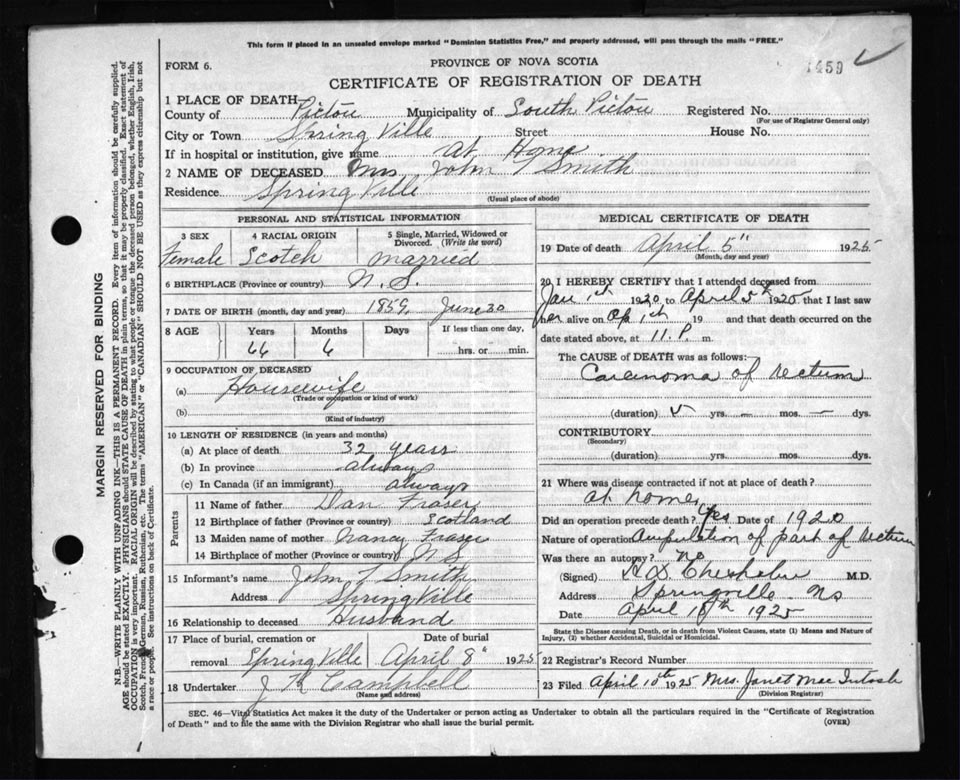 This form if placed in an unsealed envelope marked "Dominion Statistics Free," and properly addressed, will pass through the mails "FREE."
FORM 6.
PROVINCE OF NOVA SCOTIA
1459
CERTIFICATE OF REGISTRATION OF DEATH
1 PLACE OF DEATH—
County of Pictou Municipality of South Pictou Registered No.
(For use of Registrar General only)
City or Town Spring Ville Street House No.
If in hospital or institution, give name At Home
2 NAME OF DECEASED Mrs John T Smith
Residence Spring Ville
(Usual place of abode)
PERSONAL AND STATISTICAL INFORMATION
3 SEX 4 RACIAL ORIGIN 5 Single, Married, Widowed or Divorced. (Write the word)
Female Scotch married
6 BIRTHPLACE (Province or country) N.S.
7 DATE OF BIRTH (month, day and year) 1859, June 30
8 AGE Years Months Days If less than one day,
66 6 hrs. or min.
9 OCCUPATION OF DECEASED
(a) Housewife
(Trade or occupation or kind of work)
(b)
(Kind of industry)
10 LENGTH OF RESIDENCE (in years and months)
(a) At place of death 32 years
(b) In province always
(c) In Canada (if an immigrant) always
Parents
11 Name of father Dan Fraser
12 Birthplace of father (Province or country) Scotland
13 Maiden name of mother Nancy Fraser
14 Birthplace of mother (Province or country) N.S.
15 Informant's name John T Smith
Address Spring Ville
16 Relationship to deceased Husband
17 Place of burial, cremation or Date of burial
removal Spring Ville April 8" 1925
18 Undertaker J R Campbell
(Name and address)
MEDICAL CERTIFICATE OF DEATH
19 Date of death April 5" 1925
(Month, day and year)
20 I HEREBY CERTIFY that I attended deceased from
Jan 1st 1920 to April 5th 1925 that I last saw
her alive on Ap 1st, 19 and that death occurred on the
date stated above, at 11.P. m.
The CAUSE OF DEATH was as follows:
Carcinoma of rectum
(duration) 5 yrs. — mos. — dys.
CONTRIBUTORY
(Secondary)
(duration) yrs. mos. dys.
21 Where was disease contracted if not at place of death?
at home
Did an operation precede death? Yes Date of 1920
Nature of operation Amputation of part of rectum
Was there an autopsy? no
(Signed) M.D.
Address Springville Ns
Date April 10th 1925
State the Disease causing Death, or in death from Violent Causes, state (1) Means and Nature of
Injury, (2) whether Accidental, Suicidal or Homicidal.
22 Registrar's Record Number
23 Filed April 10th 1925 Mrs. Janet MacIntosh
(Division Registrar)
SEC. 46—Vital Statistics Act makes it the duty of the Undertaker or person acting as Undertaker to obtain all the particulars required in the "Certificate of Registration
of Death" and to file the same with the Division Registrar who shall issue the burial permit. (OVER)
MARGIN RESERVED FOR BINDING
N.B.—WRITE PLAINLY WITH UNFADING INK—THIS IS A PERMANENT RECORD. Every item of information should be carefully supplied.
AGE should be stated EXACTLY. PHYSICIANS should STATE CAUSE OF DEATH in plain terms, so that it may be properly classified. Exact statement of
OCCUPATION is very important. RACIAL ORIGIN will be described by stating to what people or tongue the deceased person belonged, whether English, Irish,
Scotch, French, German, Russian, Ruthenian, etc. The terms "AMERICAN" or "CANADIAN" SHOULD NOT BE USED as they express citizenship but not
a race or people. See instructions on back of Certificate.